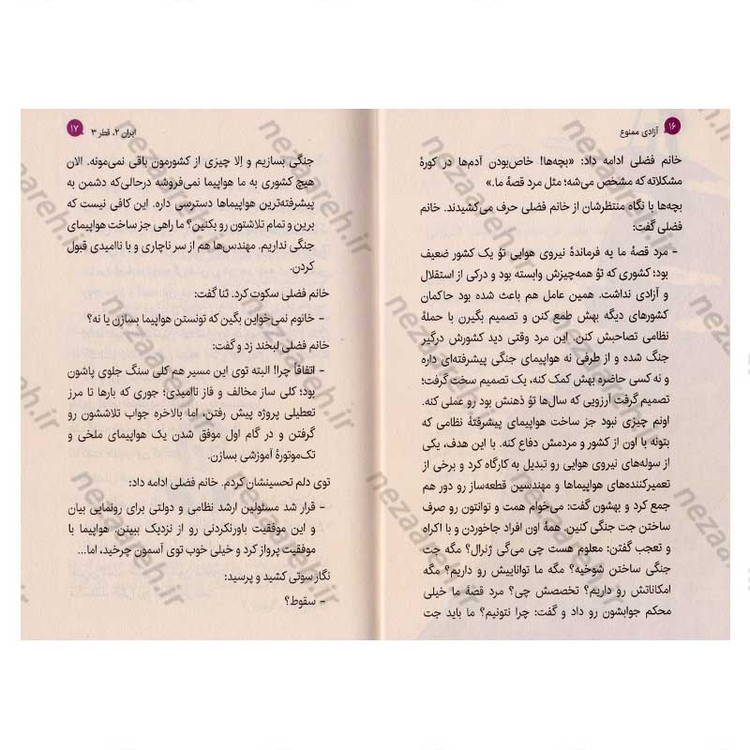 ۱۶ آزادی ممنوع
خانم فضلی ادامه داد: «بچه‌ها! خاص‌بودن آدم‌ها در کورهٔ
مشکلاته که مشخص می‌شه؛ مثل مرد قصهٔ ما.»
بچه‌ها با نگاه منتظرشان از خانم فضلی حرف می‌کشیدند. خانم
فضلی گفت:
– مرد قصهٔ ما یه فرماندهٔ نیروی هوایی تو یک کشور ضعیف
بود؛ کشوری که تو همه‌چیزش وابسته بود و درکی از استقلال
و آزادی نداشت. همین عامل هم باعث شده بود حاکمان
کشورهای دیگه بهش طمع کنن و تصمیم بگیرن با حملهٔ
نظامی تصاحبش کنن. این مرد وقتی دید کشورش درگیر
جنگ شده و از طرفی نه هواپیمای جنگی پیشرفته‌ای داره
و نه کسی حاضره بهش کمک کنه، یک تصمیم سخت گرفت؛
تصمیم گرفت آرزویی که سال‌ها تو ذهنش بود رو عملی کنه.
اونم چیزی نبود جز ساخت هواپیمای پیشرفتهٔ نظامی که
بتونه با اون از کشور و مردمش دفاع کنه. با این هدف، یکی
از سوله‌های نیروی هوایی رو تبدیل به کارگاه کرد و برخی از
تعمیرکننده‌های هواپیماها و مهندسین قطعه‌ساز رو دور هم
جمع کرد و بهشون گفت: می‌خوام همت و توانتون رو صرف
ساختن جت جنگی کنین. همهٔ اون افراد جاخوردن و با اکراه
و تعجب گفتن: معلوم هست چی می‌گی ژنرال؟ مگه جت
جنگی ساختن شوخیه؟ مگه ما تواناییش رو داریم؟ مگه
امکاناتش رو داریم؟ تخصصش چی؟ مرد قصهٔ ما خیلی
محکم جوابشون رو داد و گفت: چرا نتونیم؟ ما باید جت
ایران ۲، قطر ۳ ۱۷
جنگی بسازیم و اِلا چیزی از کشورمون باقی نمی‌مونه. الان
هیچ کشوری به ما هواپیما نمی‌فروشه درحالی‌که دشمن به
پیشرفته‌ترین هواپیماها دسترسی داره. این کافی نیست که
برین و تمام تلاشتون رو بکنین؟ ما راهی جز ساخت هواپیمای
جنگی نداریم. مهندس‌ها هم از سر ناچاری و با ناامیدی قبول
کردن.
خانم فضلی سکوت کرد. ثنا گفت:
– خانوم نمی‌خواین بگین که تونستن هواپیما بسازن یا نه؟
خانم فضلی لبخند زد و گفت:
– اتفاقاً چرا! البته توی این مسیر هم کلی سنگ جلوی پاشون
بود؛ کلی ساز مخالف و فاز ناامیدی؛ جوری که بارها تا مرز
تعطیلی پروژه پیش رفتن، اما بالاخره جواب تلاششون رو
گرفتن و در گام اول موفق شدن یک هواپیمای ملخی و
تک‌موتورهٔ آموزشی بسازن.
توی دلم تحسینشان کردم. خانم فضلی ادامه داد:
– قرار شد مسئولین ارشد نظامی و دولتی برای رونمایی بیان
و این موفقیت باورنکردنی رو از نزدیک ببینن. هواپیما با
موفقیت پرواز کرد و خیلی خوب توی آسمون چرخید، اما...
نگار سوتی کشید و پرسید:
– سقوط؟
nezaareh.ir